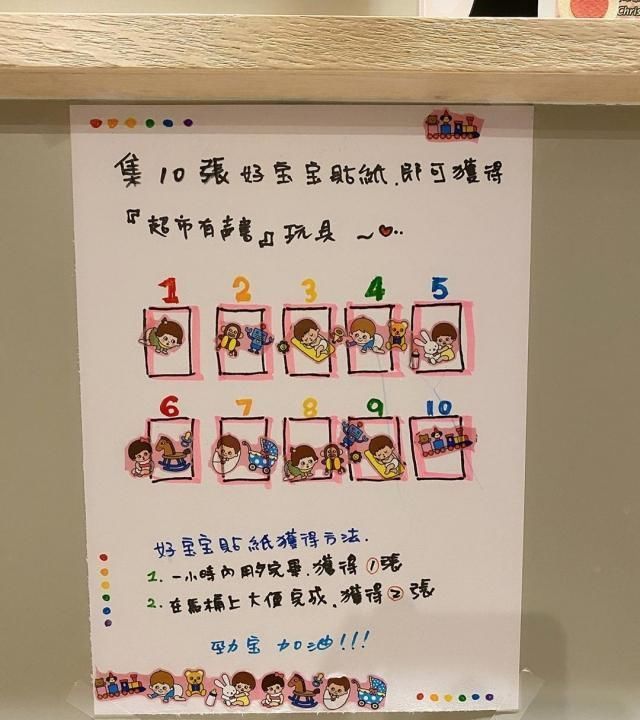 Chris
集 10 張 好宝宝貼紙.即可獲得
『超市有声書』玩具 ~
1 2 3 4 5
6 7 8 9 10
好宝宝貼紙獲得方法.
1. 一小時內用夕完畢.獲得①張
2. 在馬桶上大便完成.獲得②張
勁宝 加油!!!